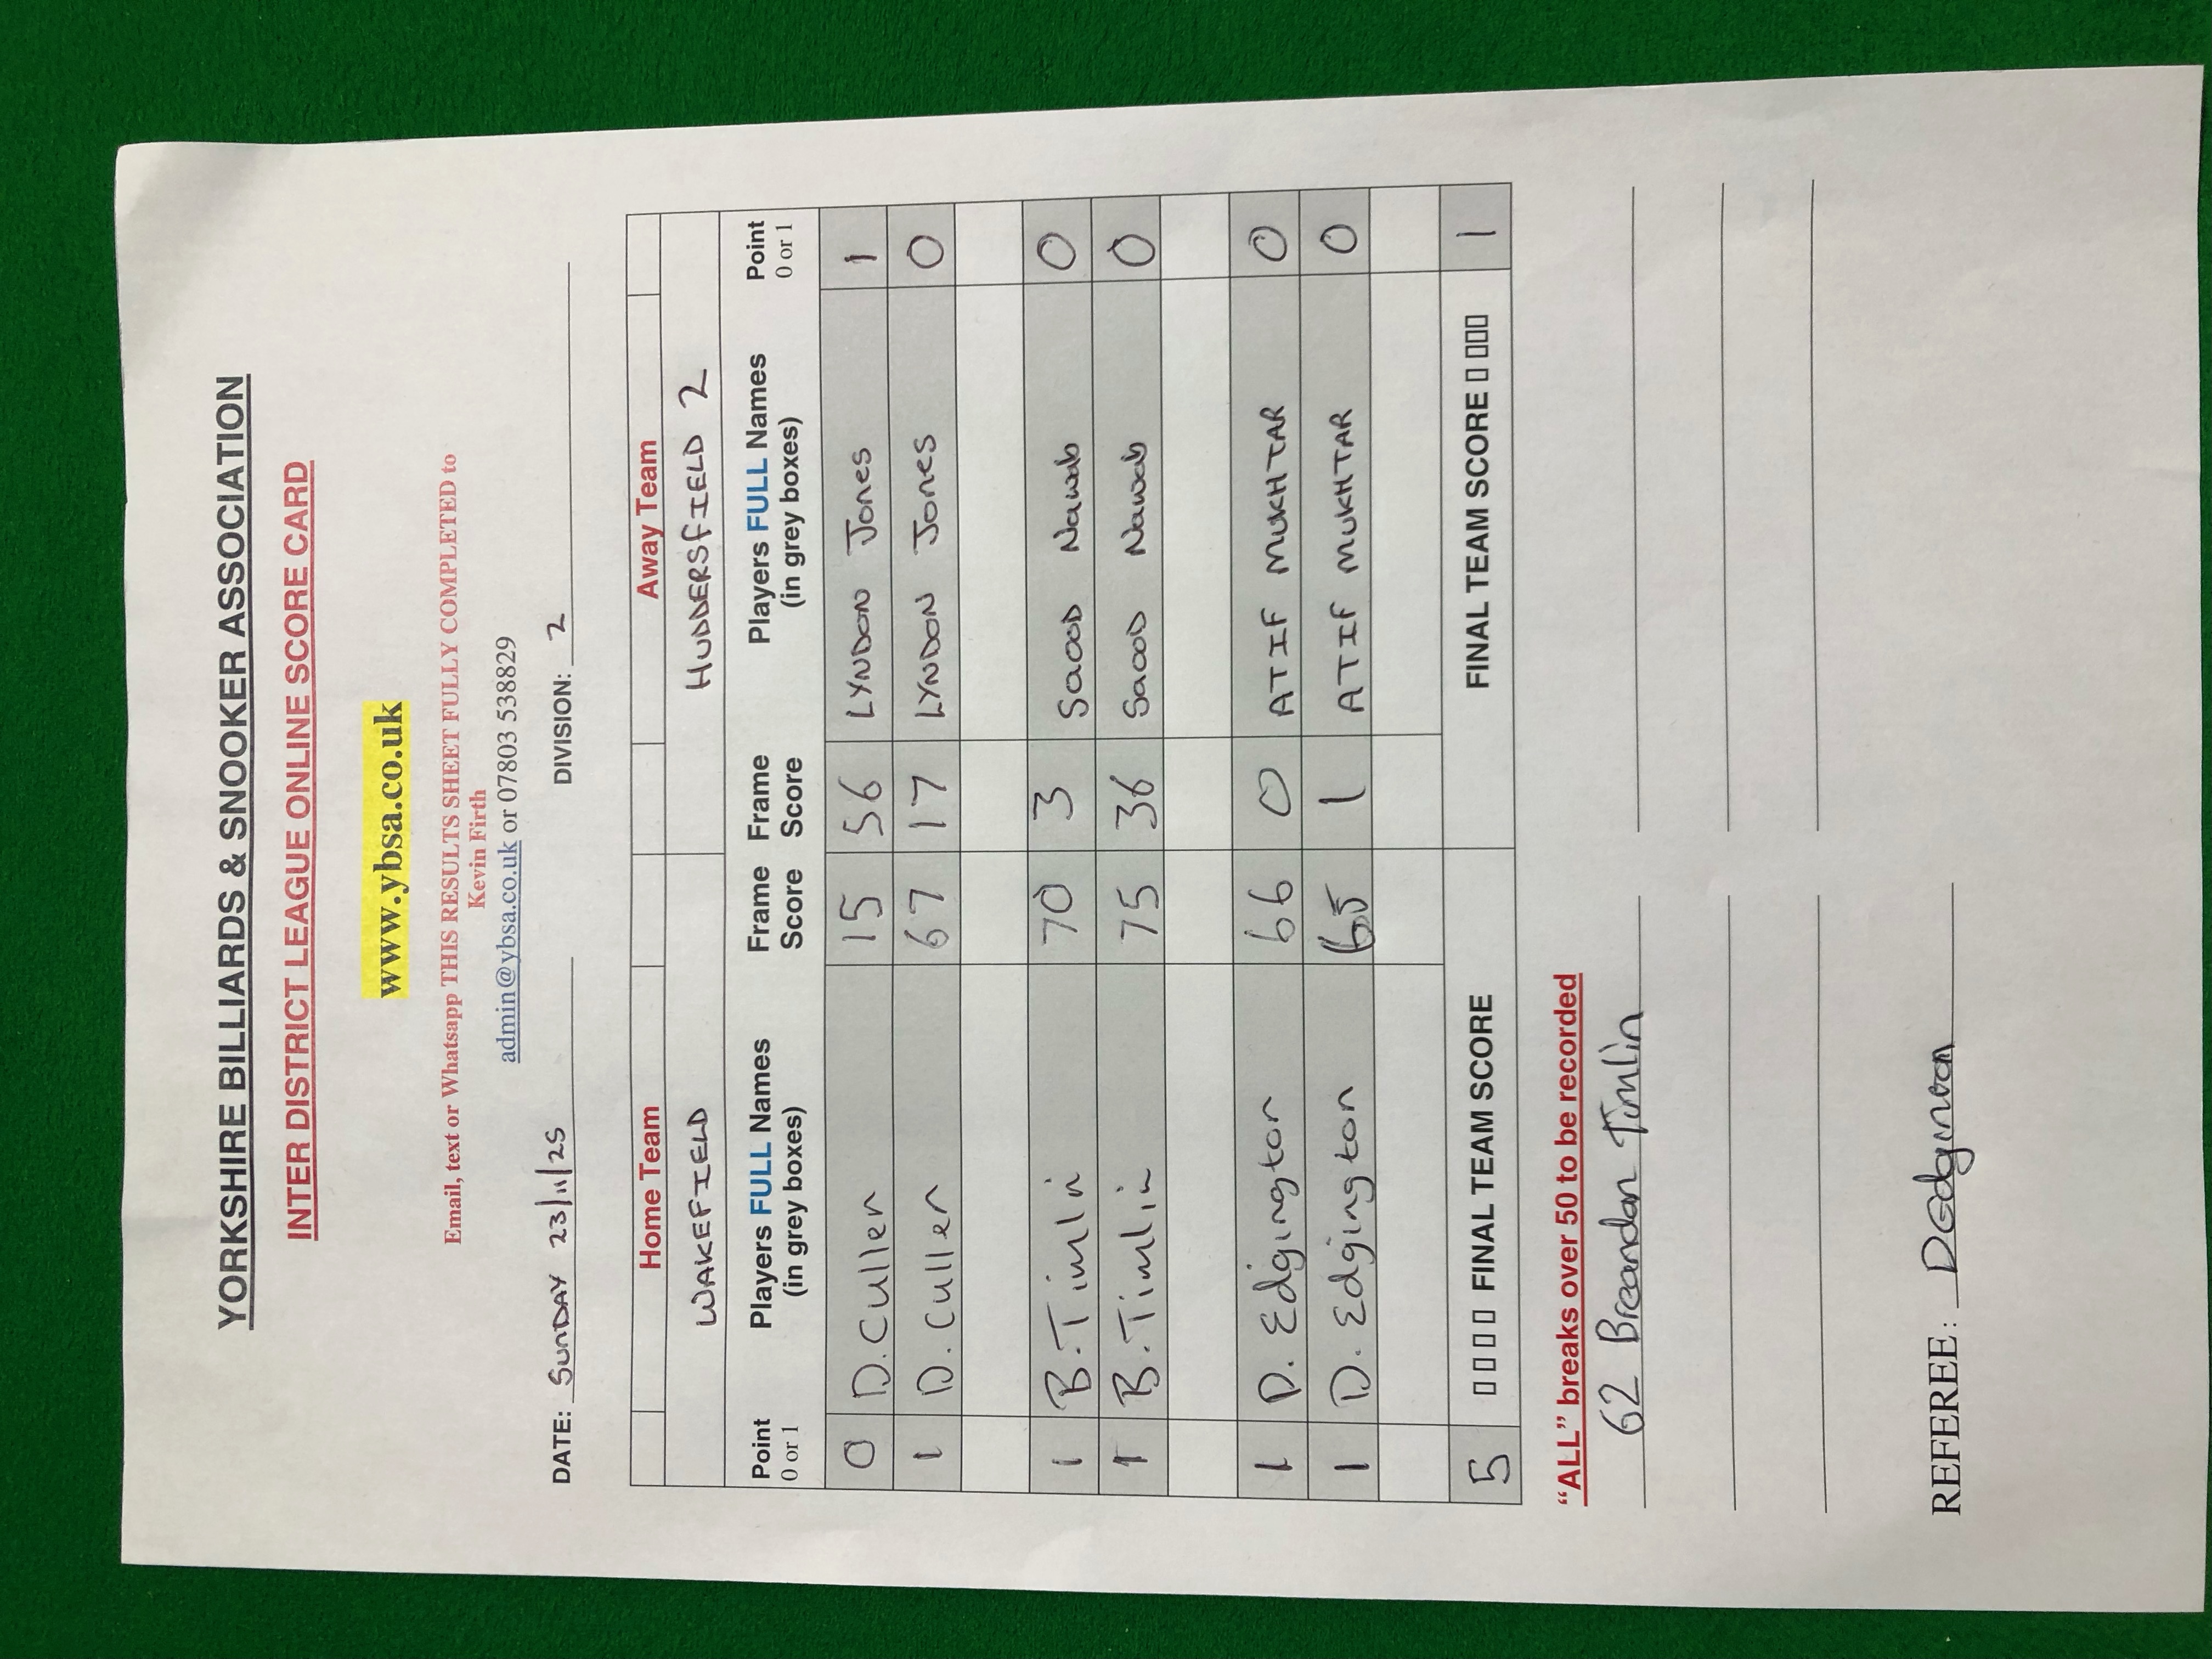 YORKSHIRE BILLIARDS & SNOOKER ASSOCIATION
INTER DISTRICT LEAGUE ONLINE SCORE CARD
www.ybsa.co.uk
Email, text or Whatsapp THIS RESULTS SHEET FULLY COMPLETED to
Kevin Firth
admin@ybsa.co.uk or 07803 538829
DATE: SUNDAY 23/11/25 DIVISION: 2
Home Team Away Team
WAKEFIELD HUDDERSFIELD 2
Point Players FULL Names Frame Frame Players FULL Names Point
0 or 1 (in grey boxes) Score Score (in grey boxes) 0 or 1
0 D. Cullen 15 56 LYNDON Jones 1
1 D. Cullen 67 17 LYNDON Jones 0
1 B. Timlin 70 3 Saood Nawab 0
1 B. Timlin 75 36 Saood Nawab 0
1 D. Edgington 66 0 ATIF MUKHTAR 0
1 D. Edgington 65 1 ATIF MUKHTAR 0
5 FINAL TEAM SCORE FINAL TEAM SCORE 1
“ALL” breaks over 50 to be recorded
62 Breandan Timlin
REFEREE: